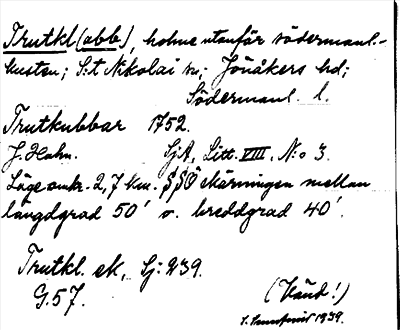 Trutkl (obb.), holme utanför södermanl.-
kusten; S:t Nikolai sn; Jönåkers hd;
Södermanl. l.
Trutkubbar 1752.
J. Hahn. SjA, Litt. VIII. N:o 3.
Läge omkr. 2,7 km. SSÖ skärningen mellan
längdgrad 50' o. breddgrad 40'.
Trutkl. ek, Sj: 239.
G. 57. (Känd!)
1939.